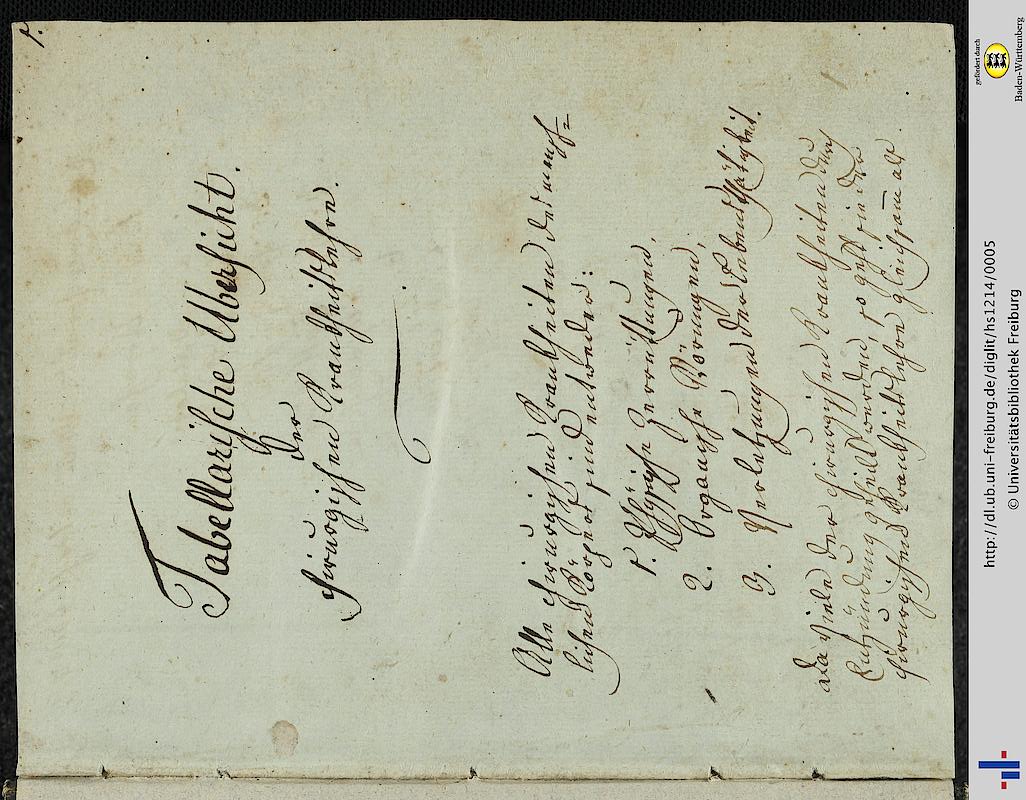 1.
Tabellarische Übersicht.
der
chirurgischen Krankheitslehre.
Alle chirurgischen Krankheiten des mensch=
lichen Körpers sind entweder:
1. Physische Zerrüttungen,
2. Organische Störungen,
3. Verletzungen der Lebensthätigkeit.
Da viele der chirurgischen Krankheiten durch
Entzündung geheilt werden, so geht sie der
chirurgischen Krankheitslehre gleichsam als
gefördert durch
Baden-Württemberg
http://dl.ub.uni-freiburg.de/diglit/hs1214/0005
© Universitätsbibliothek Freiburg